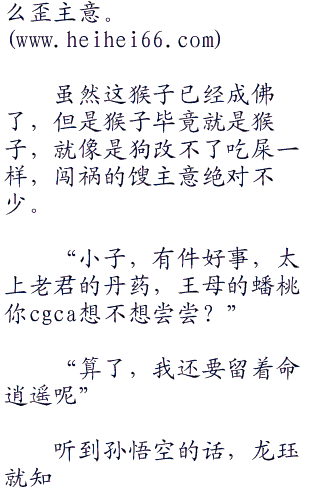 么歪主意。
(www.heihei66.com)
虽然这猴子已经成佛
了，但是猴子毕竟就是猴
子，就像是狗改不了吃屎一
样，闯祸的馊主意绝对不
少。
“小子，有件好事，太
上老君的丹药，王母的蟠桃
你cgca想不想尝尝？”
“算了，我还要留着命
逍遥呢”
听到孙悟空的话，龙珏
就知